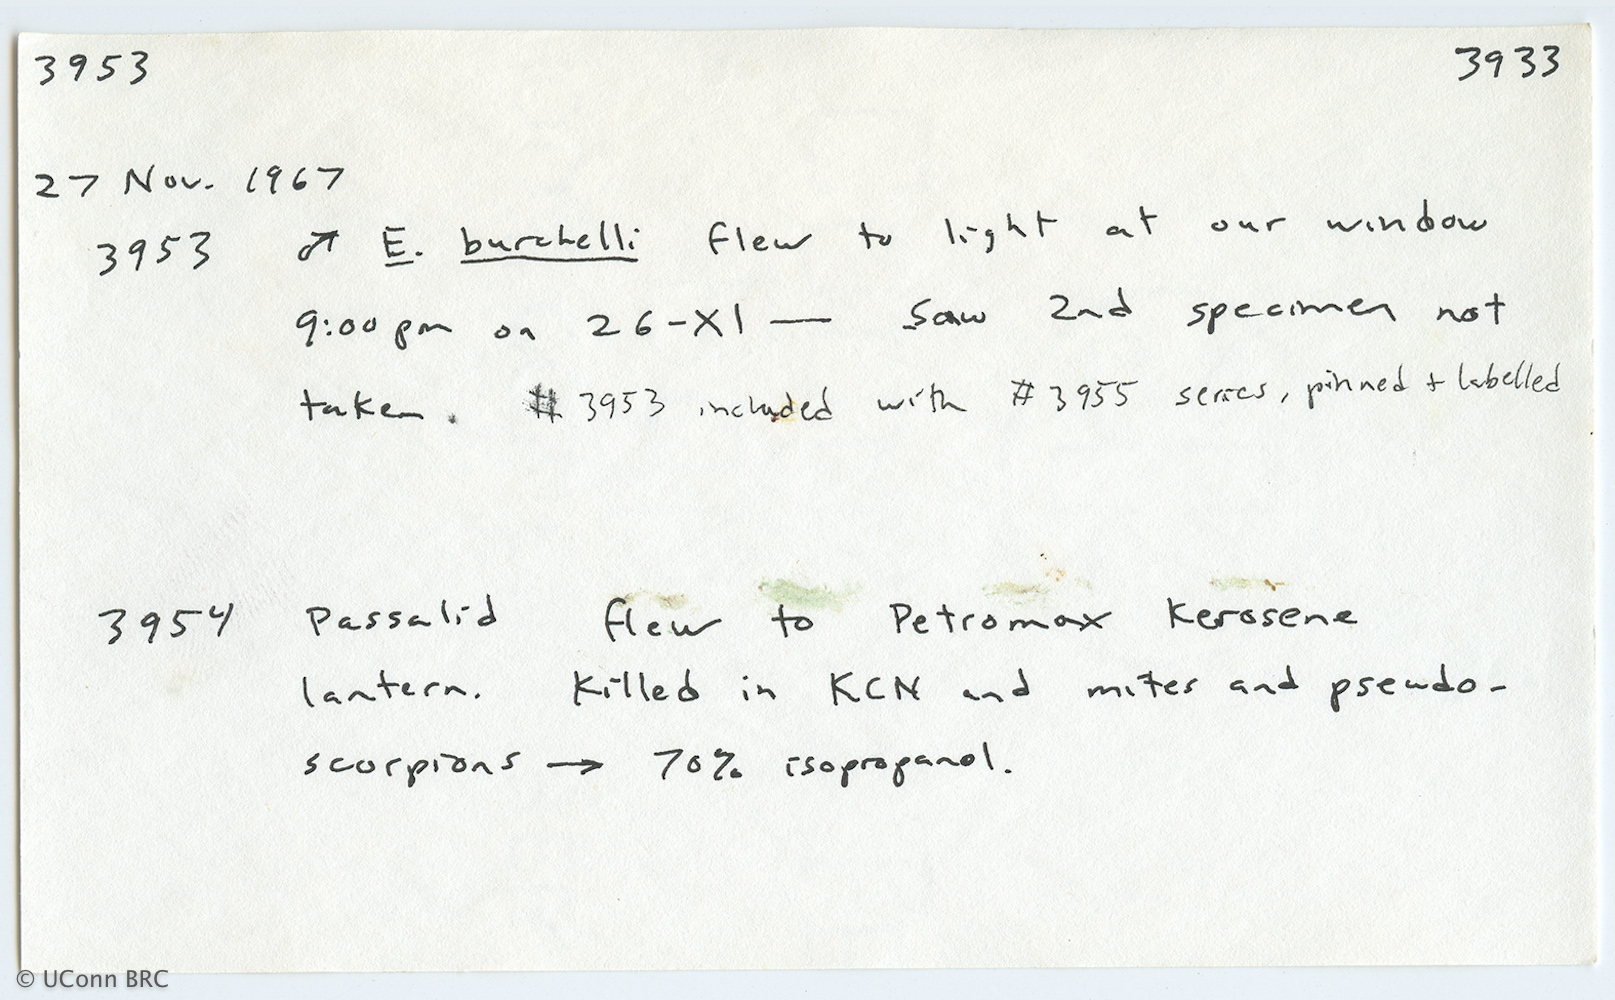 3953 3933
27 Nov. 1967
3953 ♂ E. burchelli flew to light at our window
9:00 pm on 26-XI — Saw 2nd specimen not
taken. # 3953 included with # 3955 series, pinned + labelled
3954 Passalid flew to Petromax Kerosene
lantern. Killed in KCN and mites and pseudo-
scorpions → 70% isopropanol.
© UConn BRC